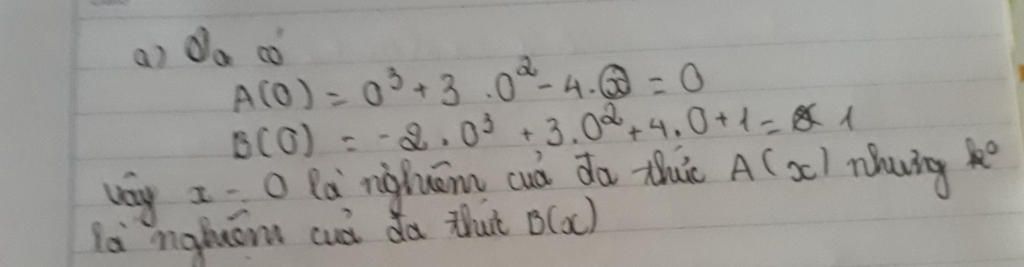 a) Ta có
A(0) = 0³ + 3 . 0² - 4 . 0 = 0
B(0) = -2 . 0³ + 3 . 0² + 4 . 0 + 1 = 1
Vậy x = 0 là nghiệm của đa thức A(x) nhưng ko
là nghiệm của đa thức B(x)